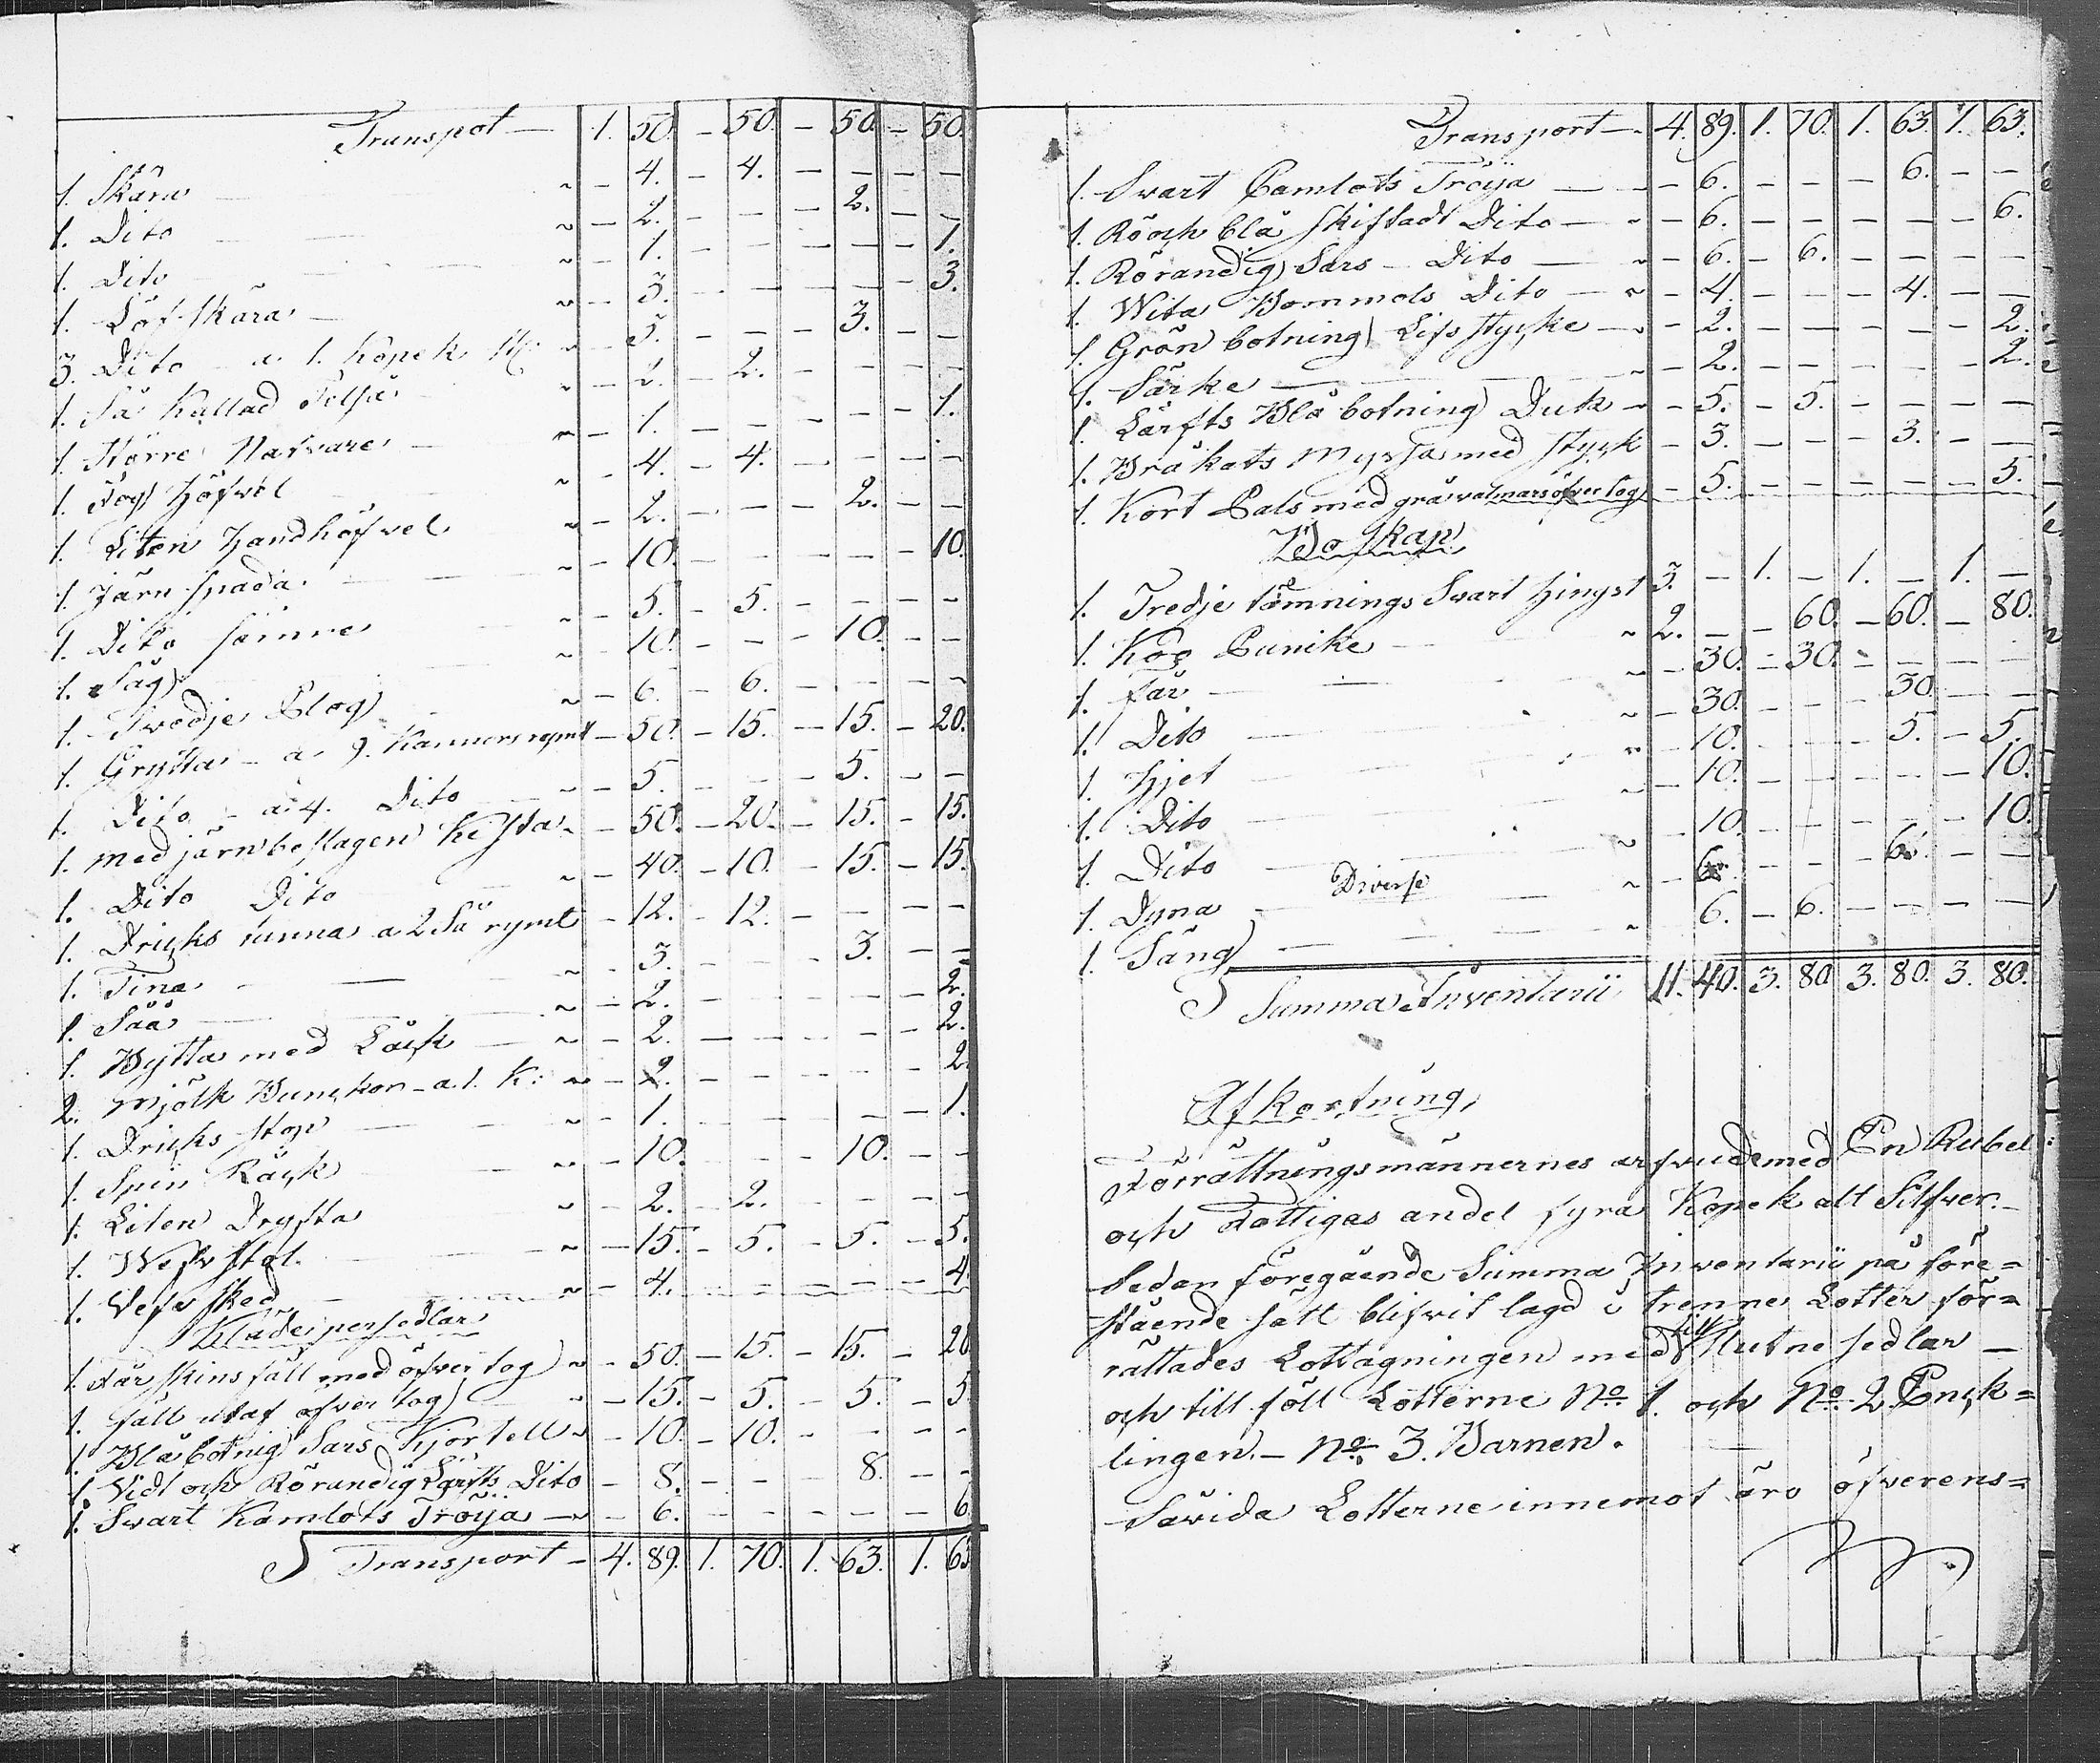 Transpot — 1. 50. – 50. – 50. – 50.
1. Skära – 4. – 4. – – – –
1. Dito – 2. – – – 2. – –
1. Dito – 1. – – – – – 1.
1. Löfskära – 3. – – – – – 3.
3. Dito a 1. kopek – 3. – – – 3. – –
1. Så Kallad – 2. – 2. – – – –
1. Större Nafvare – 1. – – – – – 1.
1. Fog Höfvel – 4. – 4. – – – –
1. Liten Handhöfvel – 2. – – – 2. – –
1. Järn spada – 10. – – – – – 10.
1. Dito sämre – 5. – 5. – – – –
1. Såg – 10. – – – 10. – –
1. Swedje Plog – 6. – 6. – – – –
1. Grytta – a 9. Kanners rymt – 50. – 15. – 15. – 20.
1. Dito – a 4. Dito – 5. – – – 5. – –
1. med järn beslagen Kista – 50. – 20. – 15. – 15.
1. Dito Dito – 40. – 10. – 15. – 15.
1. Dricks tunna a 2 Så rymt – 12. – 12. – – – –
1. Tina – 3. – – – 3. – –
1. Såå – 2. – – – – – 2.
1. Bytta med Låck – 2. – – – – – 2.
2. Mjölk Bunckor – a 1. K: – 2. – – – – – 2.
1. Dricks stop – 1. – – – – – 1.
1. Spin Råck – 10. – – – 10. – –
1. Liten Dryfta – 2. – 2. – – – –
1. Wefv stol – 15. – 5. – 5. – 5.
1. Vefv sked – 4. – – – – – 4.
Klädespersedlar
1. Fårskins fäll med öfvertog – 50. – 15. – 15. – 20.
1. fäll utaf öfvertog – 15. – 5. – 5. – 5.
1. Blåbotnig Sars Kjortell – 10. – 10. – – – –
1. Vidt och Rörandig Lärfts Dito – 8. – – – 8. – –
1. Svart Kamlots Tröija – 6. – – – – – 6.
Transport – 4. 89. 1. 70. 1. 63. 1. 63.
Transport – 4. 89. 1. 70. 1. 63. 1. 63.
1. Svart Camlots Tröija – 6. – – – 6. – –
1. Rö och blå skiftadt Dito – 6. – – – – – 6.
1. Rörandig Sars – Dito – 6. – 6. – – – –
1. Wita Bommols Dito – 4. – – – 4. – –
1. Grön botning Lifstycke – 2. – – – – – 2.
1. Särke – 2. – – – – – 2.
1. Lärfts Blå botning Duk – 5. – 5. – – – –
1. Bråkats Myssa med styck – 3. – – – 3. – –
1. Kort Pals med grå valmars öfvertog – 5. – – – – – 5.
Boskap
1. Tredje tömnings Svart Hingst 3. – 1. – 1. – 1. –
1. Koo Punike 2. – – 60. – 60. – 80.
1. Får – 30. – 30. – – – –
1. Dito – 30. – – – 30. – –
1. Hjet – 10. – – – 5. – 5.
1. Dito – 10. – – – – – 10.
1. Dito – 10. – – – – – 10.
Diverse
1. Dyna – 6. – – – 6. – –
1. Säng – 6. – 6. – – – –
Summa Inventarii 11. 40. 3. 80. 3. 80. 3. 80.
Afkortning,
Förrättningsmännernes arfvude med En Rubel
och Fattigas andel fyra Kopek alt Silfver. –
Sedan föregående Summa Inventarii på före=
stående sätt blifvit lagd i trenne Lotter för=
rättades Lottagningen med till Slutne sedlar –
och till föll Lotterne No 1. och No 2 Enck=
lingen. – No 3. Barnen.
Såvida Lotterne innemot äro öfverens=